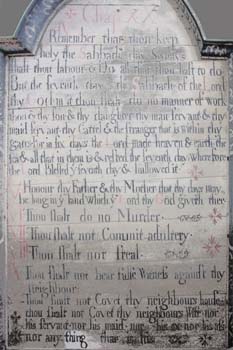 Chap XX
Remember that thou keep
holy the Sabbath day Six days
shalt thou labour & Do all that thou hast to do
But the seventh day is the Sabbath of the Lord
thy God in it thou shalt do no manner of work
thou & thy son & thy daughter thy man servant & thy
maid servant thy Cattel & the stranger that is within thy
gates For in six days the Lord made heaven & earth the
sea & all that in them is & rested the seventh day wherefore
the Lord blessed ye seventh day & hallowed it
Honour thy Father & thy Mother that thy days may
be long in ye land which ye Lord thy God giveth thee
Thou shalt do no Murder
Thou shalt not Commit adultery
Thou shalt not steal
Thou shalt not bear false Witness against thy
Neighbour
Thou shalt not Covet thy neighbours house
thou shalt not Covet thy neighbours Wife nor
his servant nor his maid nor his ox nor his ass
nor any thing that is his